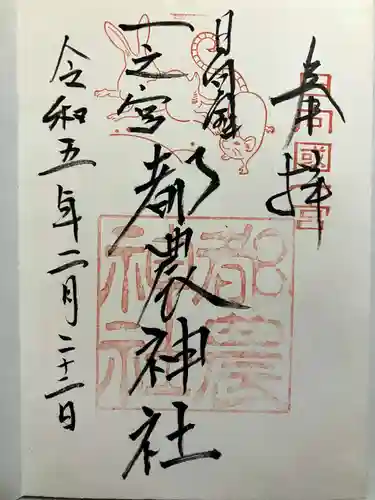 奉拝
日向國
一之宮都農神社
令和五年二月二十二日
都農
神社